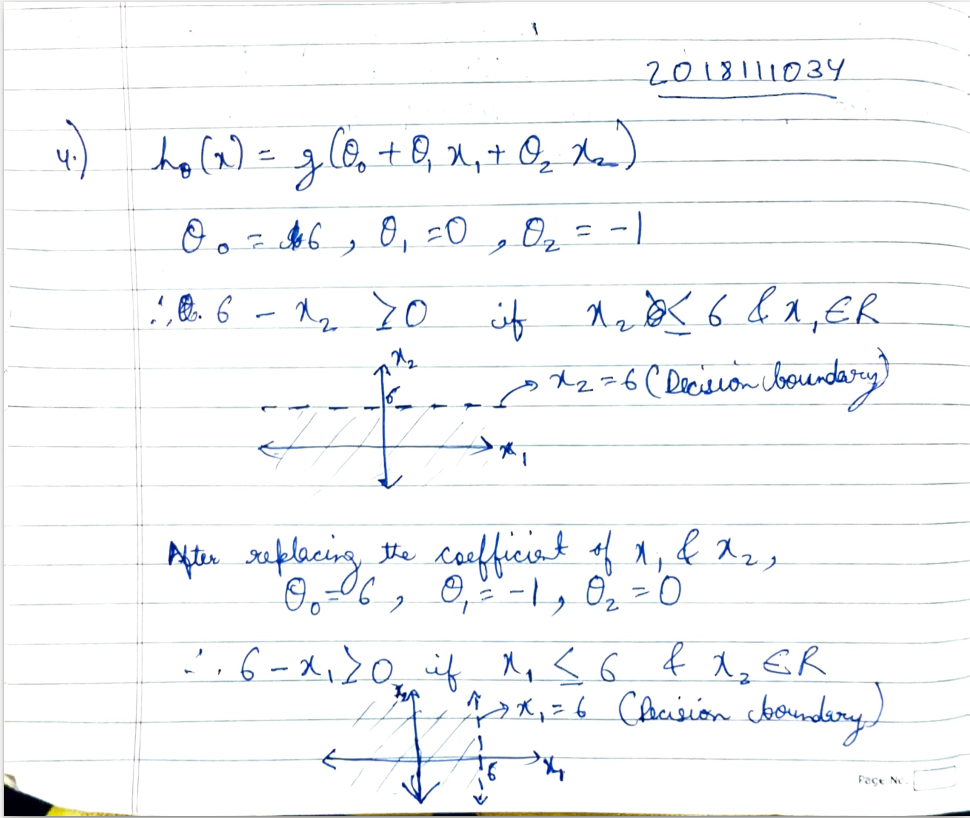 2018111034
4.) hθ(x) = g(θ₀ + θ₁ x₁ + θ₂ x₂)
θ₀ = 6 , θ₁ = 0 , θ₂ = -1
∴ 6 - x₂ ≥ 0 if x₂ ≤ 6 & x₁ ∈ R
x₂
6
x₂ = 6 (Decision boundary)
x₁
After replacing the coefficient of x₁ & x₂,
θ₀ = 6 , θ₁ = -1 , θ₂ = 0
∴ 6 - x₁ ≥ 0 if x₁ ≤ 6 & x₂ ∈ R
x₂
x₁ = 6 (Decision boundary)
6
x₁
Page No.